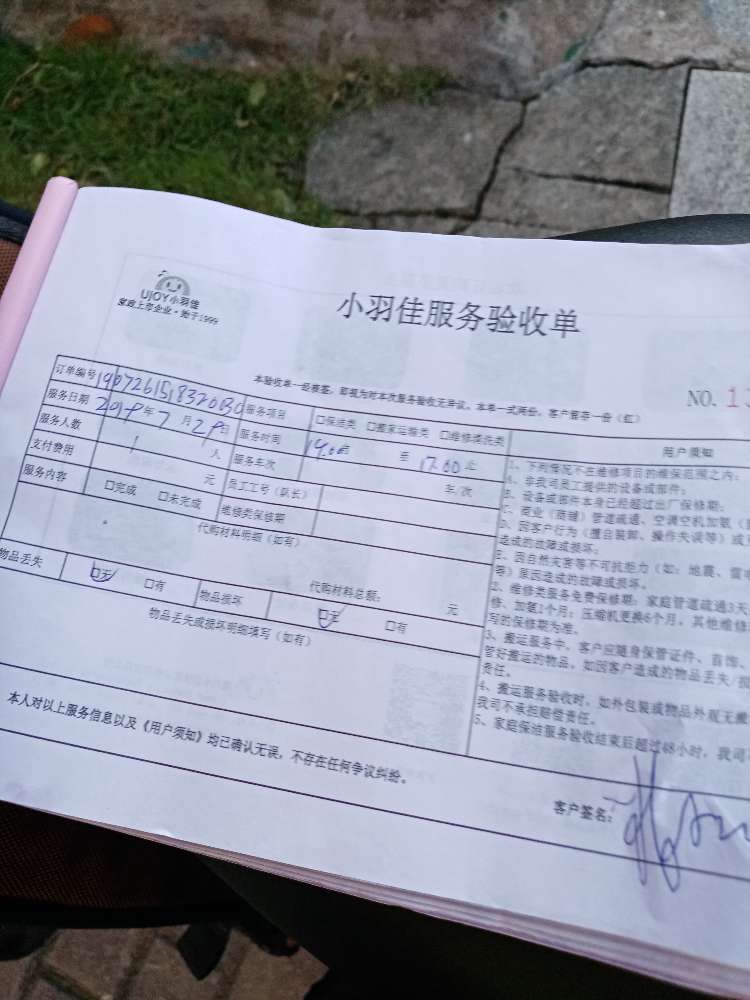 UJOY小羽佳
家政上市企业·始于1999
小羽佳服务验收单
本验收单一经签签，即视为对本次服务验收无异议。本单一式两份，客户留存一份（红）
NO. 13
订单编号 190726151832013 服务项目 □保洁类 □搬家运输类 □维修清洗类
服务日期 2019年7月29日 服务时间 14.00 至 17.00 止
服务人数 1 人 服务车次 车/次
支付费用 元 员工工号（队长）
服务内容 □完成 □未完成 维修类保修期
代购材料明细（如有）
代购材料总额： 元
物品丢失 □无 □有 物品损坏 □无 □有
物品丢失或损坏明细填写（如有）
用户须知
1、下列情况不在维修项目的维保范围之内：
A、非我司员工提供的设备或部件；
B、设备或部件本身已经超过出厂保修期；
C、商业（商铺）管道疏通、空调空机加氨（
D、因客户行为（擅自装卸、操作失误等）或
造成的故障或损坏；
E、因自然灾害等不可抗拒力（如：地震、雷
等）原因造成的故障或损坏。
2、维修类服务免费保修期：家庭管道疏通3天
修、加氨1个月；压缩机更换6个月，其他维修
写的保修期为准。
3、搬运服务中，客户应随身保管证件、首饰、
管好搬运的物品，如因客户造成的物品丢失/损
责任。
4、搬运服务验收时，如外包装或物品外观无
我司不承担赔偿责任。
5、家庭保洁服务验收结束后超过48小时，我司
本人对以上服务信息以及《用户须知》均已确认无误，不存在任何争议纠纷。
客户签名：